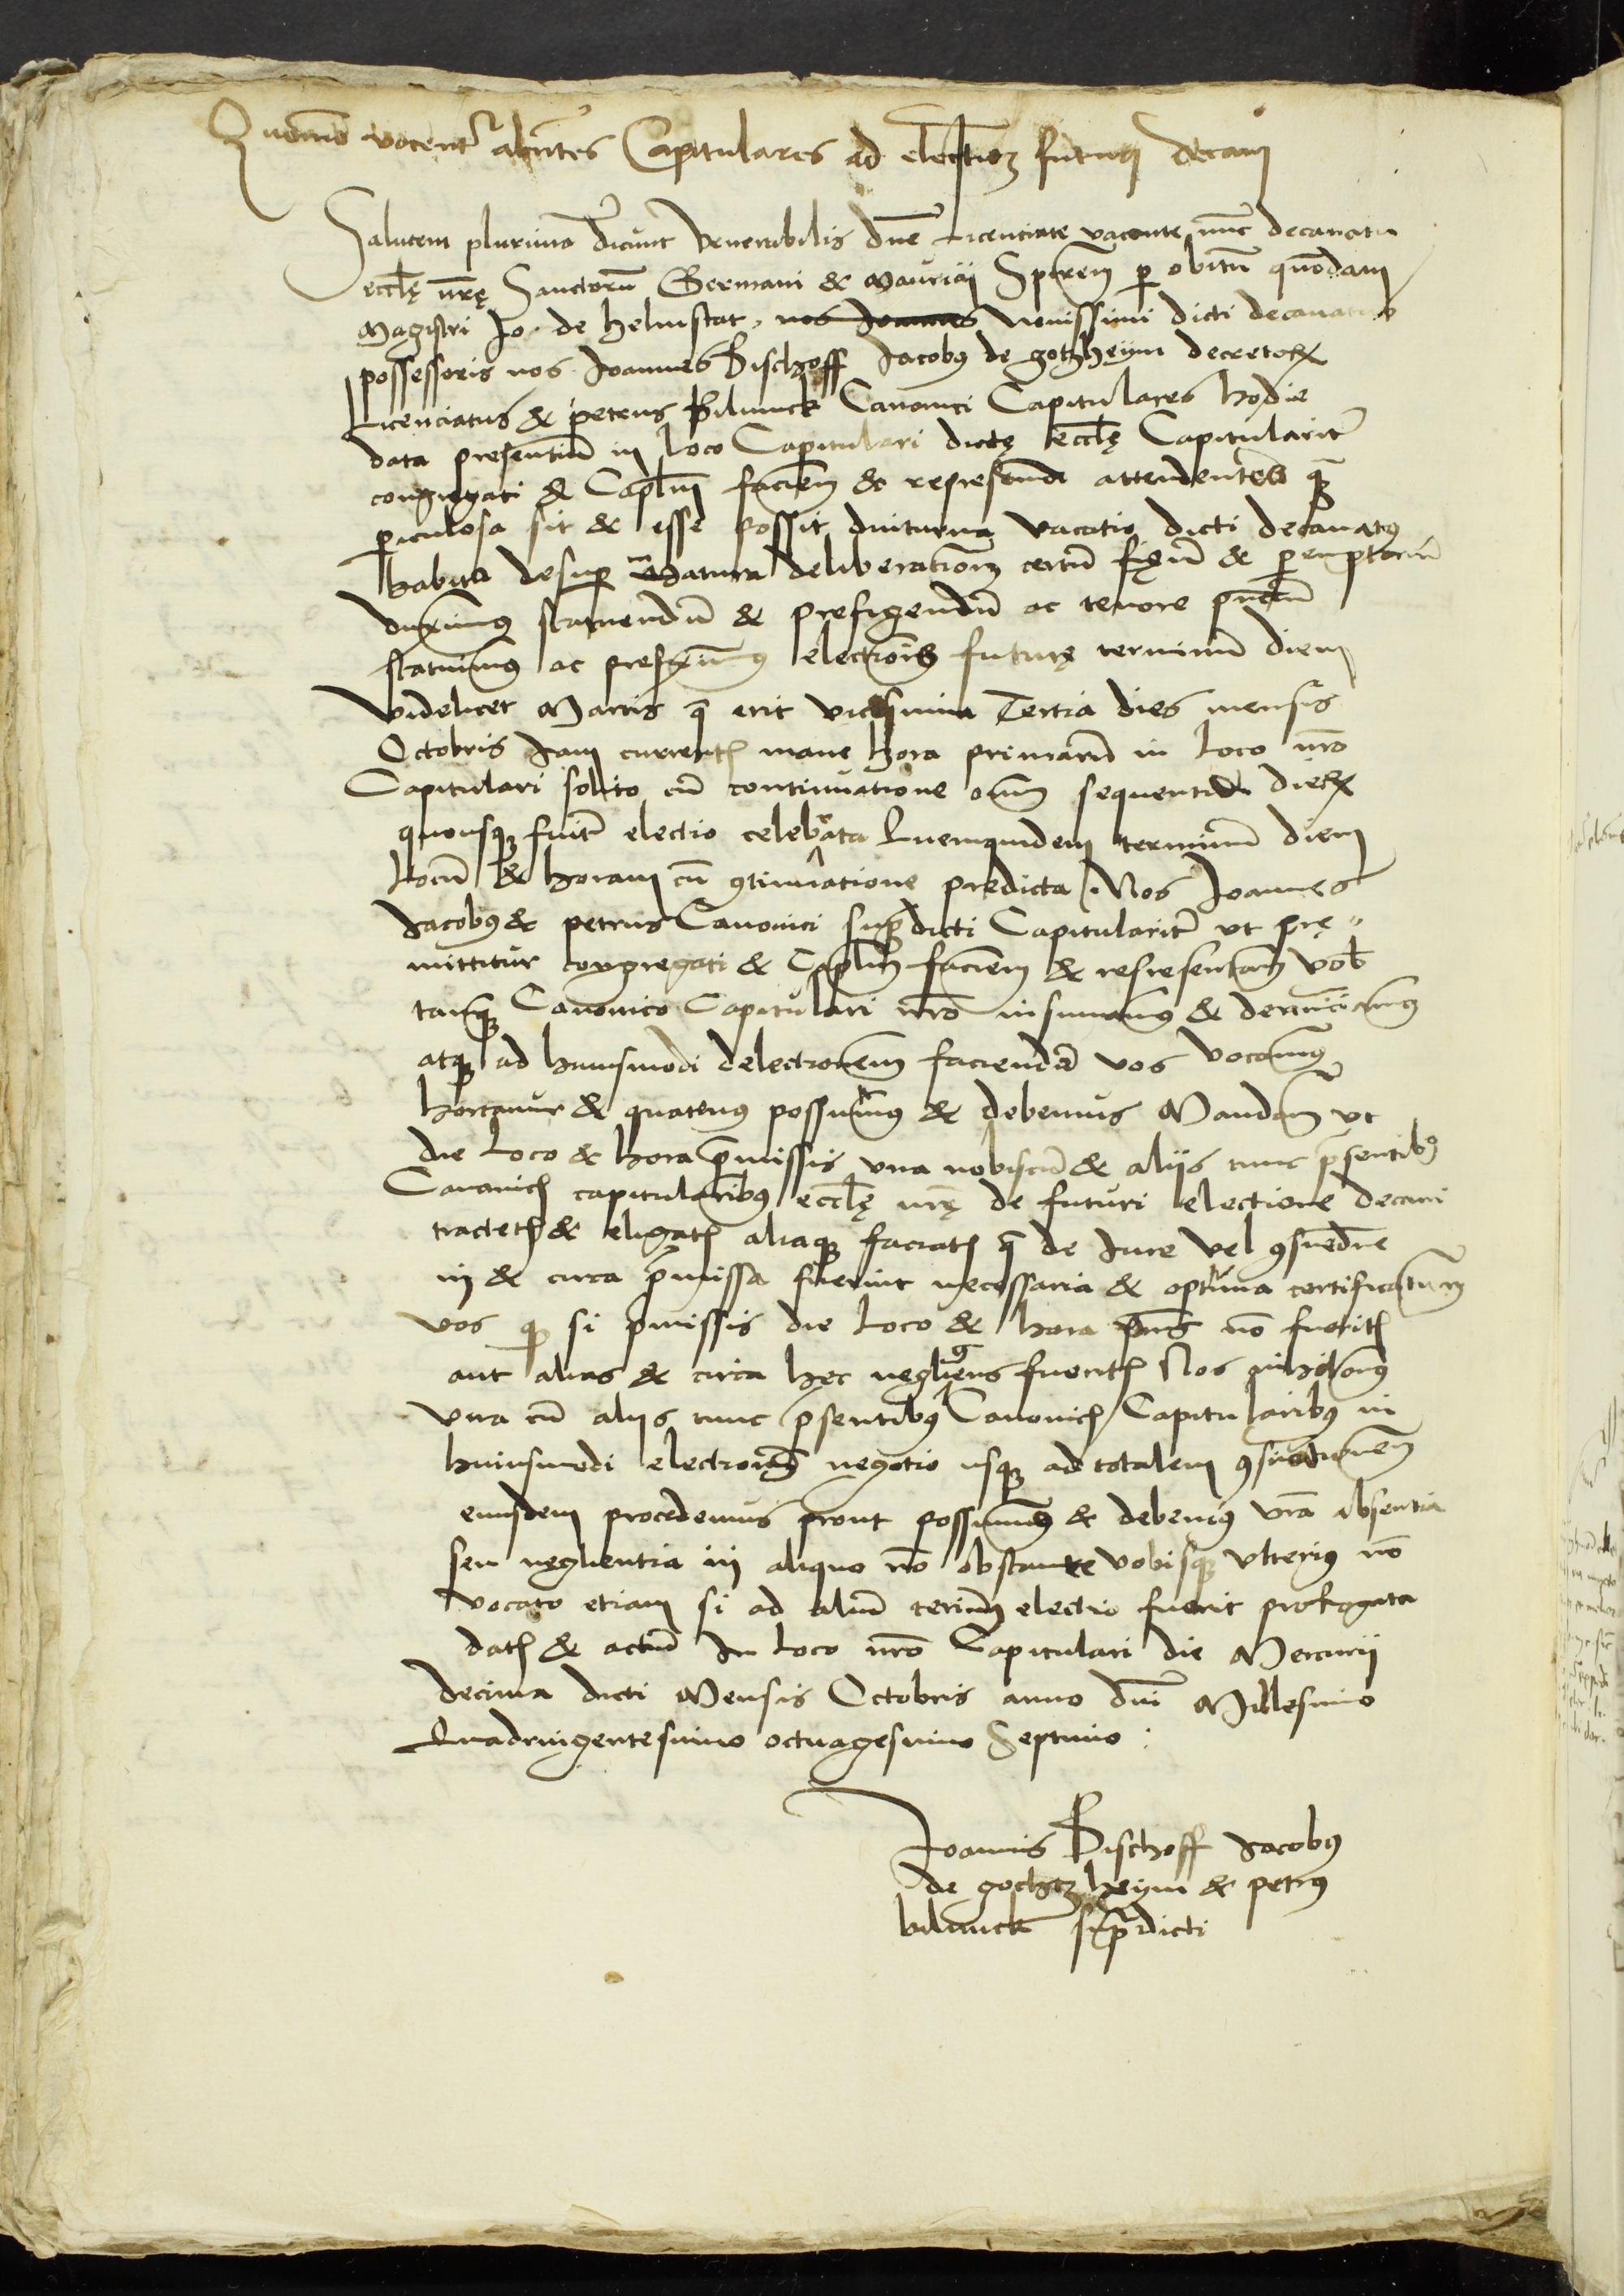 Quomo vocentr abntes Capitulares ad electioz futuri decani
Salutem plurima dicunt Venerabilis dne Licenciate vacante nunc decanatu
eccle nre Sanctoru Germani & Mauricij Spiren p obitu quondam
Magistri Jo. de helmstat. nos Joannes Novissimi dicti decanatus
possessoris nos Joannes Bischoff Jacobus de gotzheym decretorum
Licenciatus & petrus Bilunck Canonici Capitulares hodie
data presentiu in loco Capitulari dicte eccle Capitularit
congregati & Caplm facien & represent attendentes qz
piculosa sit & esse possit diuturna vacatio dicti decanatus
habita desup matura deliberatioe certu & pemptoriu
duximus statuendu & prefigendu ac tenore pntiu
statuimus ac prefiximus electionis future terminu diem
Videlicet Martis q erit vicesima Tertia dies mensis
Octobris Jam currentis mane hora primaru in Loco nro
Capitulari solito cu continuatione oim sequentiu dierum
quousqz fuit electio celebrata Quemquidem terminu diem
Locu & horam cu 9tinuatione predicta Nos Joannes
Jacobus & petrus Canonici supradicti Capitularit ut pre„
mittitur congregati & Caplm facien & representan vob
tanqz Canonico Capitulari nro insinuamus & denunciamus
atqz ad huiusmodi delectionem facienda vos vocamus
hortamur & quatenus possumus & debemus Mandam ut
die Loco & hora pmissis una nobiscu & alijs tunc psentibus
Canonicis capitularibus eccle nre de futuri electione decani
tractetis & eligatis aliaqz faciatis q de Jure Vel 9suedne
in & circa pmissa fuerint necessaria & optuna certificantes
vos qz si pmissis die Loco & hora pns no fueritis
aut alias & circa hec negligens fueritis Nos nihilominus
Vna cu alijs tunc psentibus Canonicis Capitularibus in
huiusmodi electionis negotio usqz ad totalem 9sumationem
eiusdem procedemus prout possumus & debemus vra absentia
seu neglientia in aliquo no obstante Vobisqz Vlterius no
vocato etiam si ad aliu terim electio fuerit prorogata
datis & actu In Loco nro Capitulari die Mercurij
decima dicti Mensis Octobris anno dni Millesimo
Quadringentesimo octuagesimo Septimo :
Joannis Bischoff Jacobus
de gochtzheym & petrus
bilunck supradicti